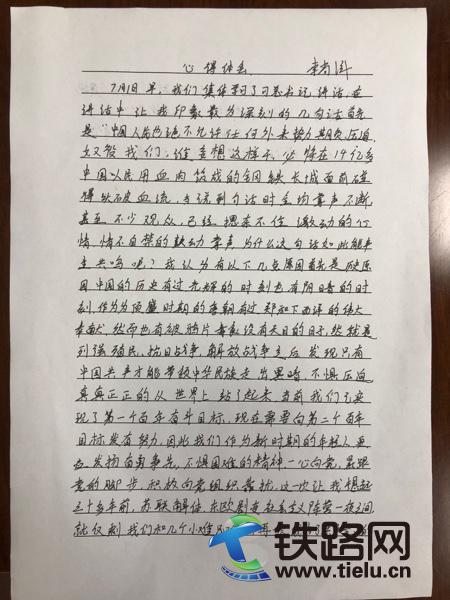 心得体会
7月1日早,我们集体学习了习总书记,讲话,在
讲话中让我印象最为深刻的几句话首先
是"中国人民也绝不允许任何外来势力欺负,压迫,
奴役我们,谁妄想这样干,必将在14亿多
中国人民用血肉筑成的钢铁长城面前碰
得头破血流,当说到句话时全场掌声不断,
甚至不少观众,已经摁奈不住激动的心
情,情不自禁的鼓动掌声,为什么这句话如此能产
生共鸣呢?我认为有以下几点原因首先是历史原
因中国的历史有过光辉的时刻也有阴暗的时
刻,作为为顶盛时期的唐朝有过郑和下西洋的伟大
奉献,然而也有被鸦片毒害没有天日的日子,然就是
列强殖民,抗日战争,解放战争之后发现只有
中国共产才能带领中华民族走出黑暗,不惧压迫
真真正正的从世界上站了起来,当前我们已实
现了第一个百年奋斗目标,现在需要向第二个百年
目标发有努力,因此我们作为新时期的年轻人更
应发扬奋勇争先,不惧困难的精神一心向党,紧跟
党的脚步,积极向党组织靠拢,这一次让我想起
三十多年前,苏联解体,东欧剧变社会主义阵营一夜之间
就仅剩我们和几个小难
铁路网
www.tielu.cn